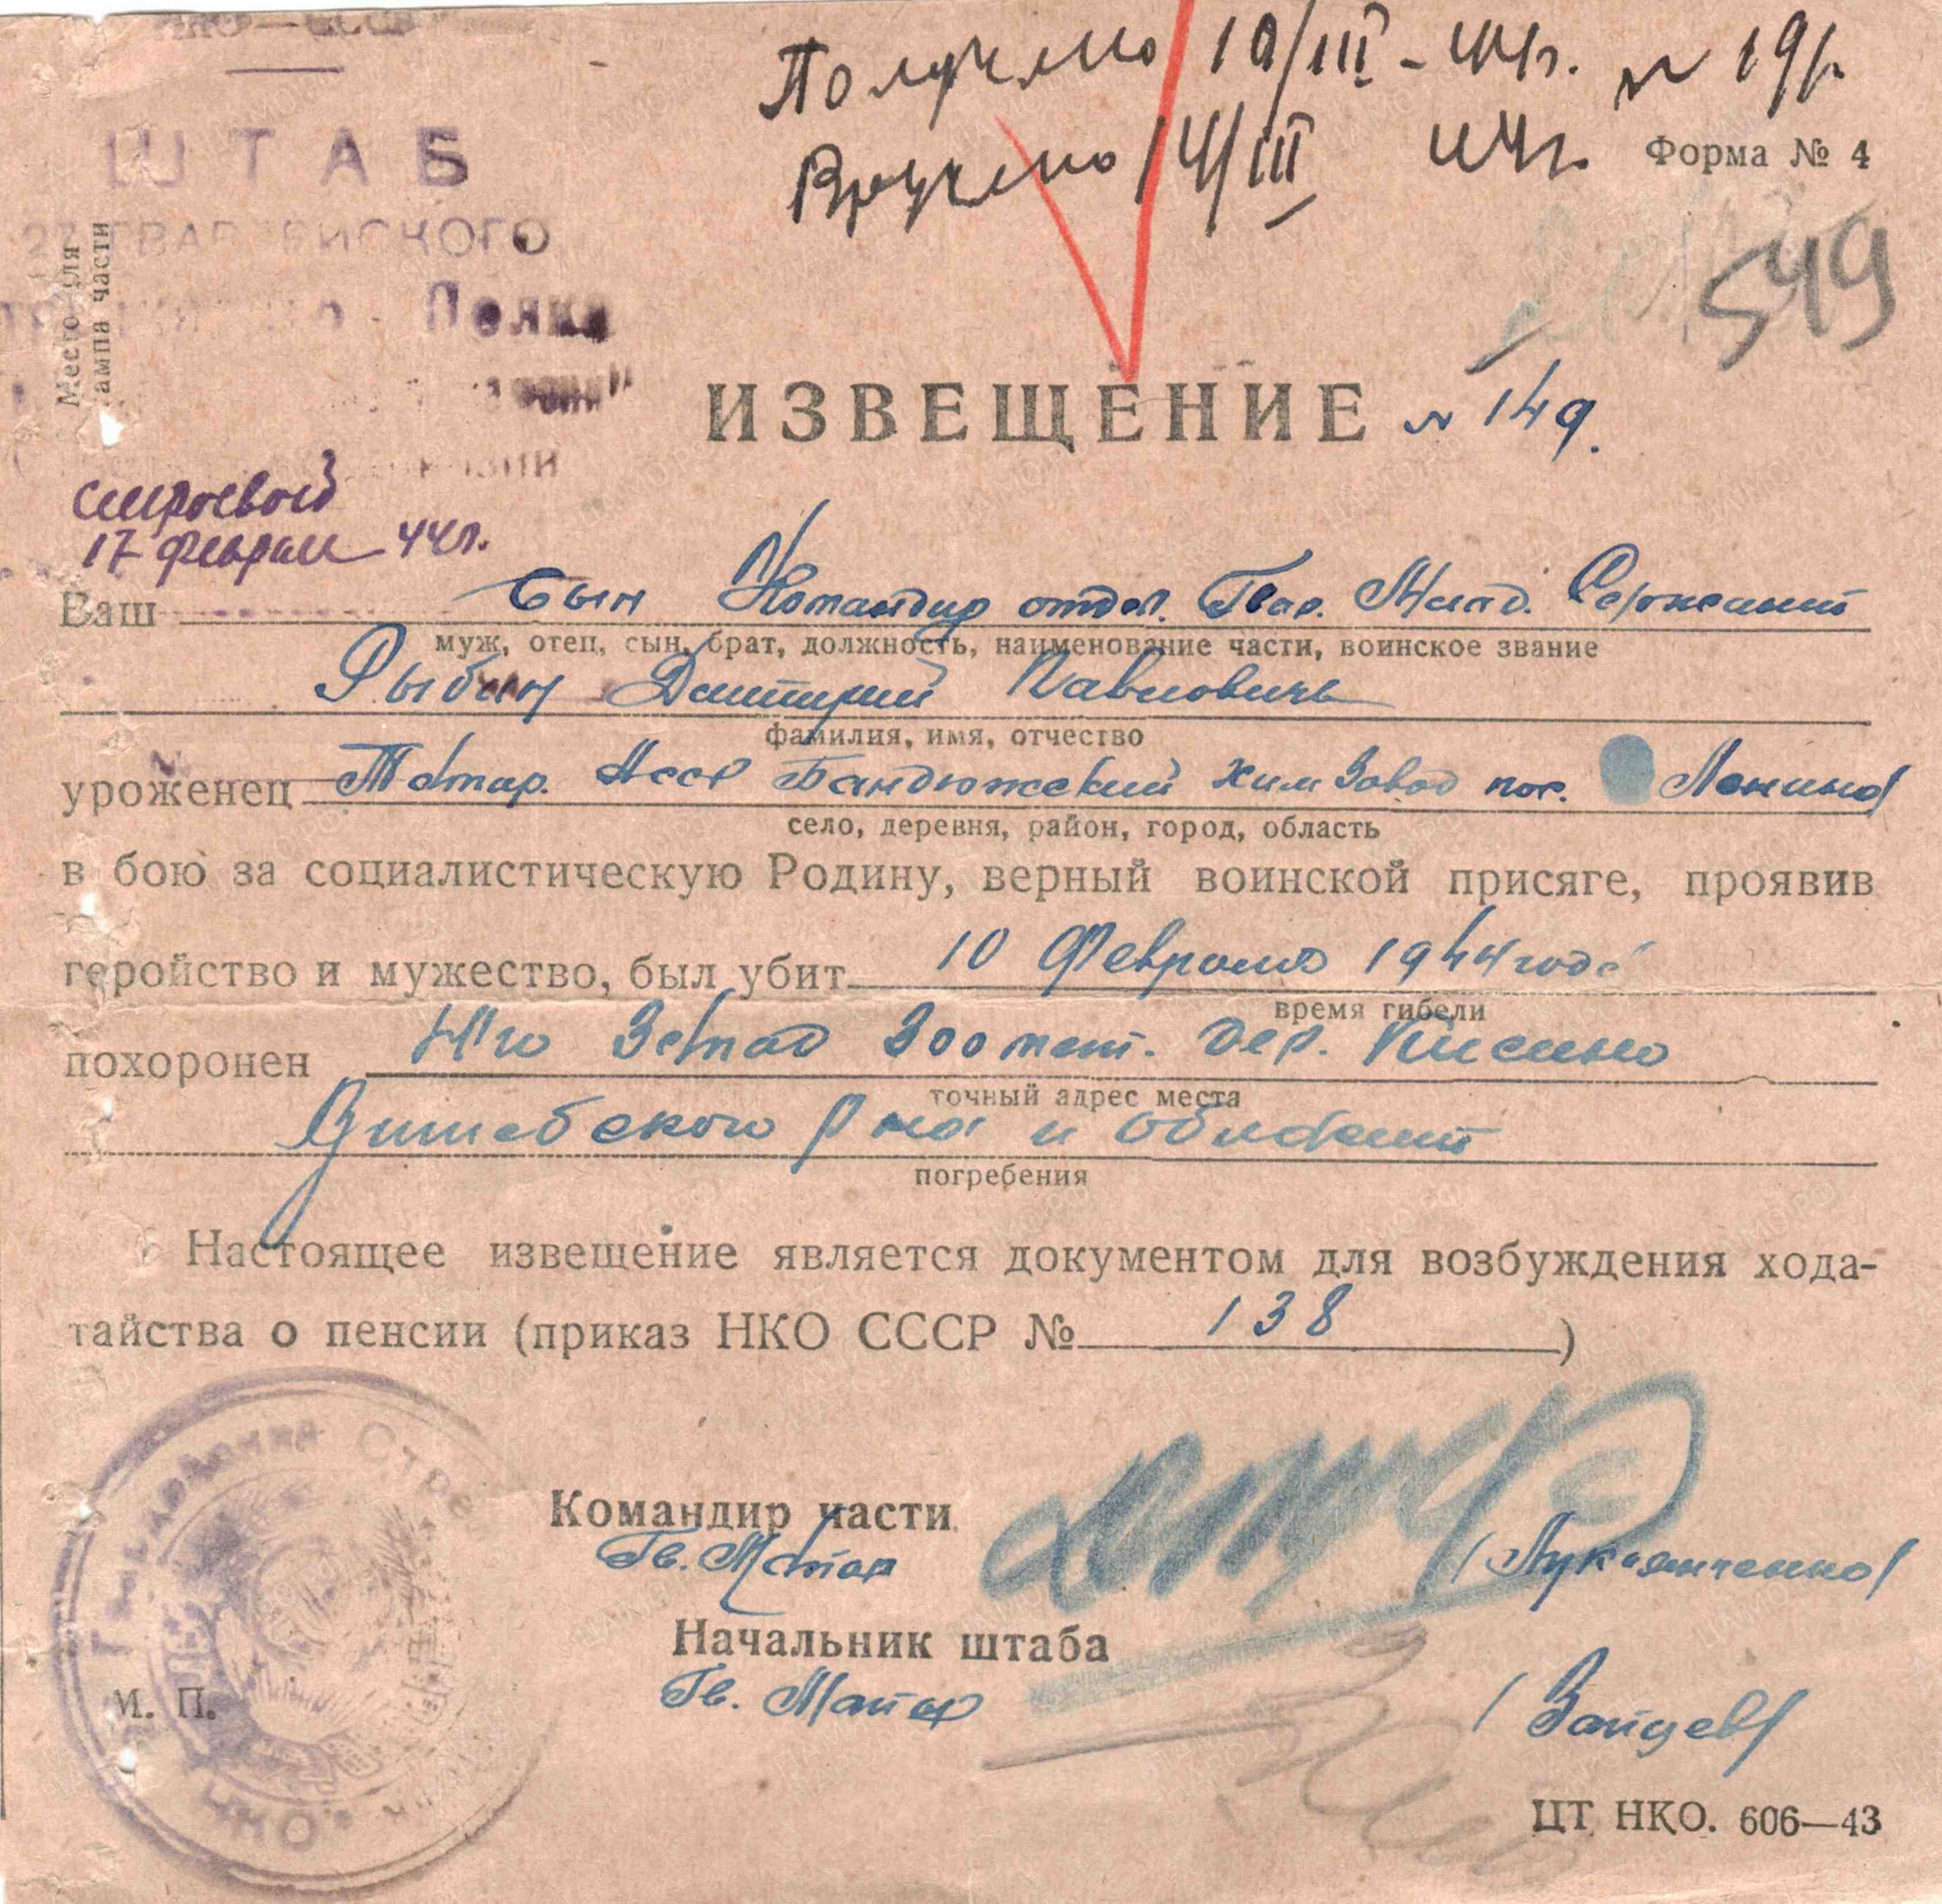 НКО — СССР
Получено 10/III - 44г. № 191.
Вручено 14/III 44г.
Форма № 4
ШТАБ
ГВАРДЕЙСКОГО
Полка
Место для
штампа части
549
ИЗВЕЩЕНИЕ № 149.
строевой
17 февраля 44г.
Ваш сын Командир отдел. Гвар. Млад. Сержант
муж, отец, сын, брат, должность, наименование части, воинское звание
Рыбин Дмитрий Павлович
фамилия, имя, отчество
уроженец Татар. Асср Бондюжский хим Завод пос. Ленина
село, деревня, район, город, область
в бою за социалистическую Родину, верный воинской присяге, проявив
геройство и мужество, был убит 10 Февраля 1944 года
время гибели
похоронен Юго Запад 300 мет. дер.
точный адрес места
Витебского Р на и области
погребения
Настоящее извещение является документом для возбуждения хода-
тайства о пенсии (приказ НКО СССР № 138)
Командир части
Гв. Майор (Лукьянченко)
Начальник штаба
Гв. Майор (Зайцев)
М. П.
ЦТ НКО. 606—43